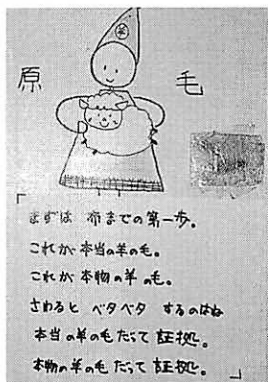 羊
原 毛
「
まずは 布までの第一歩。
これが本当の羊の毛。
これが本物の羊の毛。
さわると ベタベタ するのはね
本当の羊の毛だって 証拠。
本物の羊の毛だって 証拠。
」